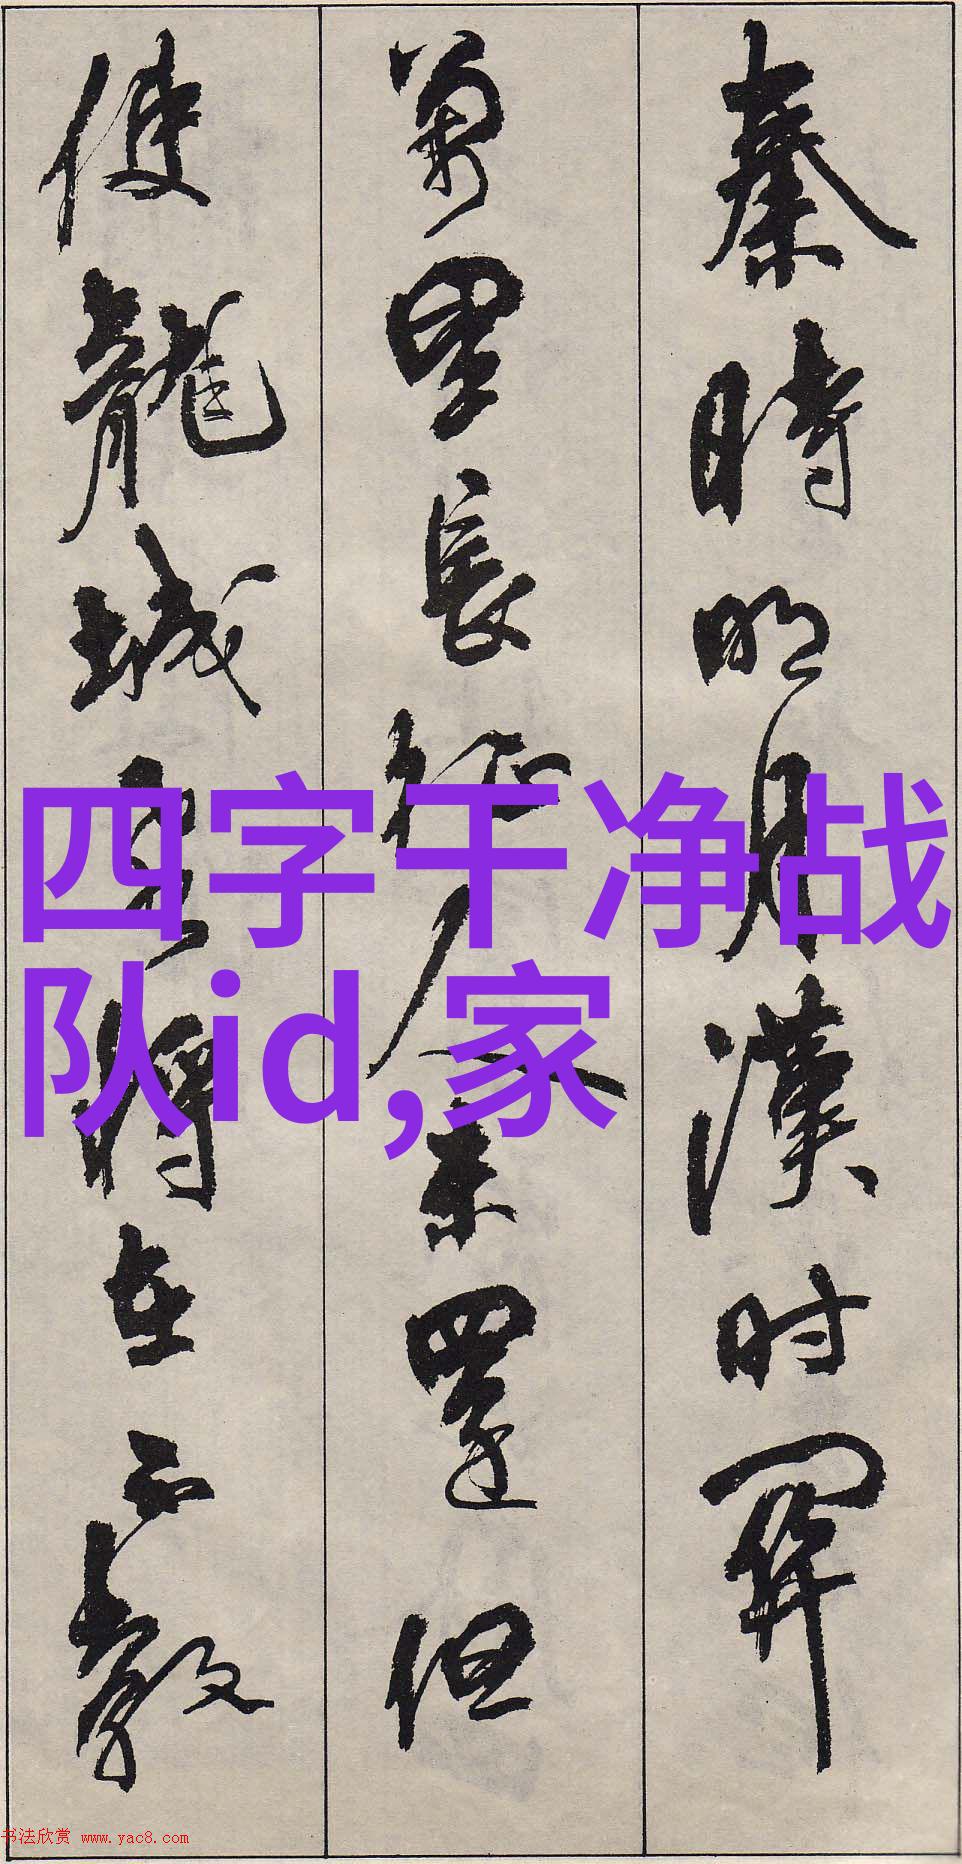 秦時明月漢时関
萬里長征人未還但
使龍城飛將在不教
四字干净战
队id,家
书法欣赏 www.yac8.com